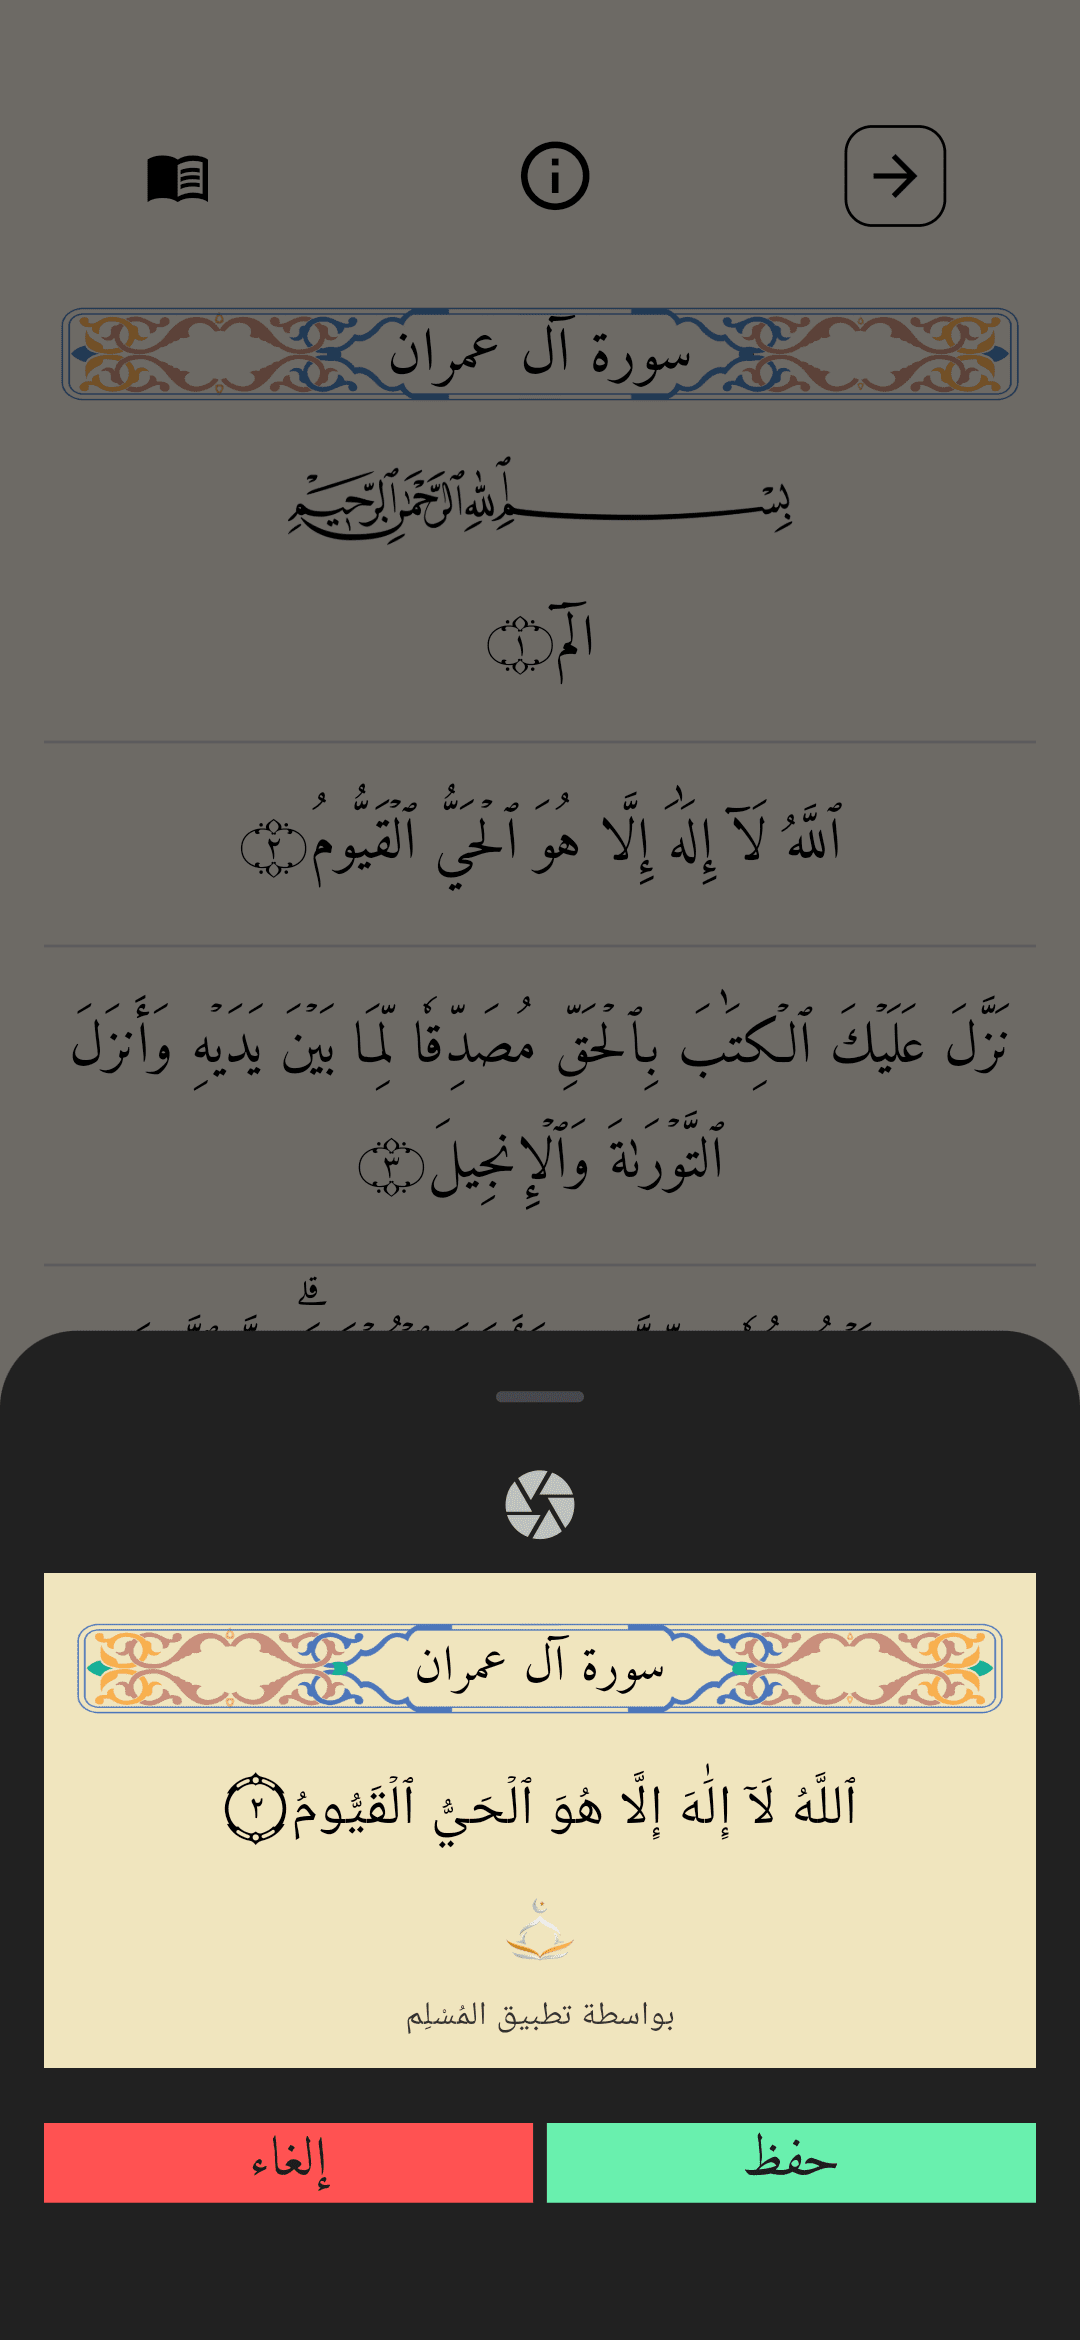 سورة آل عمران
بِسْمِ ٱللَّهِ ٱلرَّحْمَٰنِ ٱلرَّحِيمِ
الٓمٓ ١
ٱللَّهُ لَآ إِلَٰهَ إِلَّا هُوَ ٱلْحَيُّ ٱلْقَيُّومُ ٢
نَزَّلَ عَلَيْكَ ٱلْكِتَٰبَ بِٱلْحَقِّ مُصَدِّقًا لِّمَا بَيْنَ يَدَيْهِ وَأَنزَلَ
ٱلتَّوْرَىٰةَ وَٱلْإِنجِيلَ ٣
سورة آل عمران
ٱللَّهُ لَآ إِلَٰهَ إِلَّا هُوَ ٱلْحَيُّ ٱلْقَيُّومُ ٢
بواسطة تطبيق المُسْلِم
حفظ
إلغاء